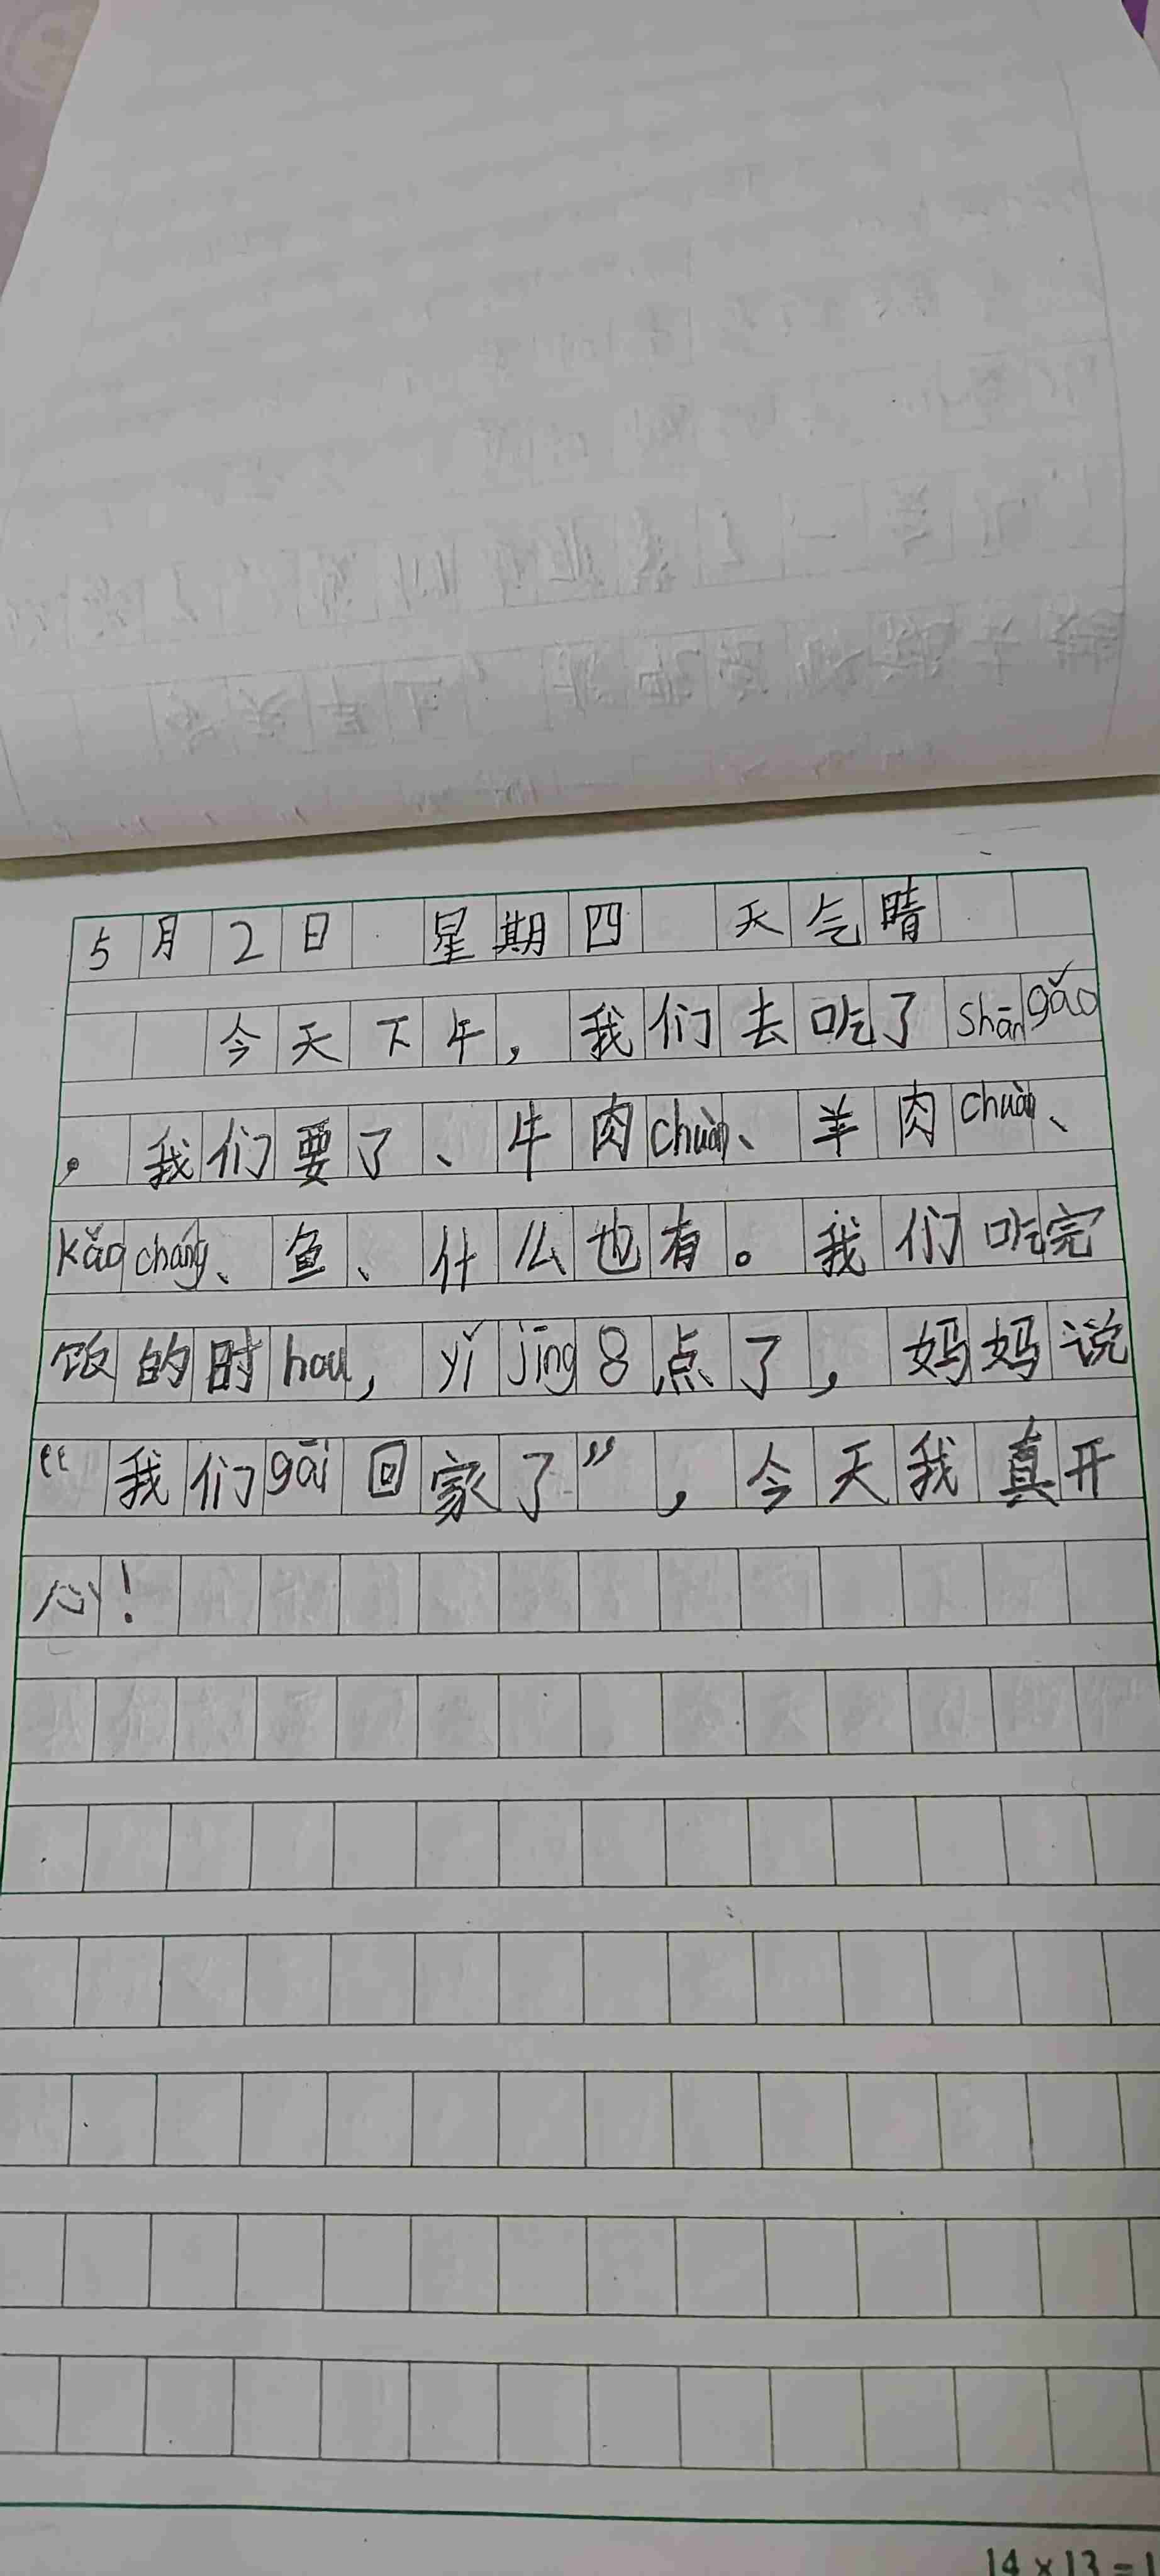 5月2日 星期四 天气晴
今天下午，我们去吃了shāngǎo
，我们要了、牛肉chuàn、羊肉chuàn、
kǎo cháng、鱼、什么也有。我们吃完
饭的时hou，yǐ jīng 8点了，妈妈说
“我们gāi回家了”，今天我真开
心！
14×13=1